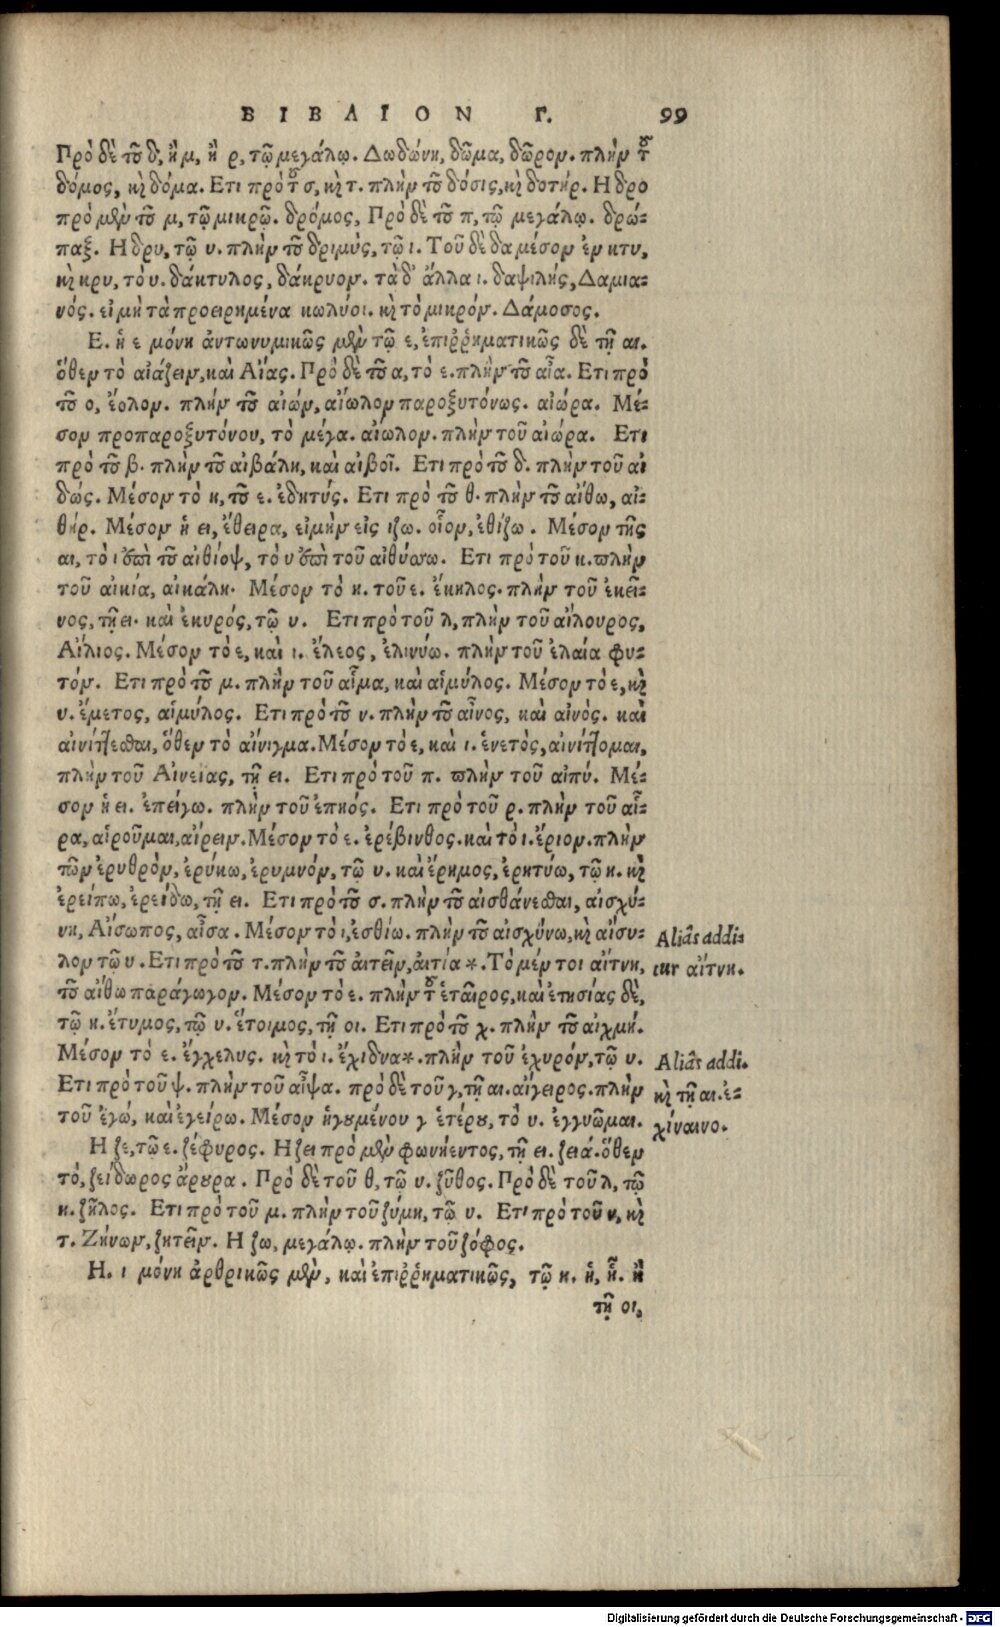 ΒΙΒΛΙΟΝ Γ. 99
Πρὸ δὲ τοῦ δ, ἢ μ, ἢ ρ, τῷ μεγάλῳ. Δωδώνη, δῶμα, δῶρον. πλὴν τοῦ
δόμος, καὶ δόμα. Ετι πρὸ τοῦ σ, καὶ τ. πλὴν τοῦ δόσις, καὶ δοτήρ. Η δρο
πρὸ μὲν τοῦ μ, τῷ μικρῷ. δρόμος, Πρὸ δὲ τοῦ π, τῷ μεγάλῳ. δρώ-
παξ. Η δρυ, τῷ υ. πλὴν τοῦ δριμὺς, τῷ ι. Τοῦ δὲ δα μέσον ἐν κτυ,
καὶ κρυ, τὸ υ. δάκτυλος, δάκρυον. τὰ δ' ἄλλα ι. δαψιλής, Δαμια-
νός. εἰ μὴ τὰ προειρημένα κωλύοι. καὶ τὸ μικρόν. Δάμοσος.
Ε. ἡ ε μόνη ἀντωνυμικῶς μὲν τῷ ε, ἐπιῤῥηματικῶς δὲ τῇ αι.
ὅθεν τὸ αἰάζειν, καὶ Αἴας. Πρὸ δὲ τοῦ α, τὸ ε. πλὴν τοῦ αἶα. Ετι πρὸ
τοῦ ο, ἔολον. πλήν τοῦ αἰών, αἴωλον παροξυτόνως. αἰώρα. Μέ-
σον προπαροξυτόνου, τὸ μέγα. αἴωλον. πλὴν τοῦ αἰώρα. Ετι
πρὸ τοῦ β. πλὴν τοῦ αἰβάλη, καὶ αἰβοῖ. Ετι πρὸ τοῦ δ. πλὴν τοῦ αἰ
δώς. Μέσον τὸ η, τοῦ ε. ἐδητύς. Ετι πρὸ τοῦ θ. πλὴν τοῦ αἴθω, αἰ-
θήρ. Μέσον ἡ ει, ἔθειρα, εἰ μὴν εἰς ιζω. οἷον, ἐθίζω. Μέσον τῆς
αι, τὸ ι ἐπὶ τοῦ αἰθίοψ, τὸ υ ἐπὶ τοῦ αἰθύσσω. Ετι πρὸ τοῦ κ. πλὴν
τοῦ αἰκία, αἰκάλη. Μέσον τὸ κ. τοῦ ε. ἔκηλος. πλὴν τοῦ ἐκεῖ-
νος, τῇ ει. καὶ ἑκυρός, τῷ υ. Ετι πρὸ τοῦ λ, πλὴν τοῦ αἴλουρος,
Αἴλιος. Μέσον τὸ ε, καὶ ι. ἔλεος, ἐλινύω. πλὴν τοῦ ἐλαία φυ-
τόν. Ετι πρὸ τοῦ μ. πλὴν τοῦ αἷμα, καὶ αἱμύλος. Μέσον τὸ ε, καὶ
υ. ἔμετος, αἱμύλος. Ετι πρὸ τοῦ ν. πλὴν τοῦ αἶνος, καὶ αἰνὸς. καὶ
αἰνίττεσθαι, ὅθεν τὸ αἴνιγμα. Μέσον τὸ ε, καὶ ι. ἑνετὸς, αἰνίττομαι,
πλὴν τοῦ Αἰνείας, τῇ ει. Ετι πρὸ τοῦ π. πλὴν τοῦ αἰπύ. Μέ-
σον ἡ ει. ἐπείγω. πλὴν τοῦ ἐπηός. Ετι πρὸ τοῦ ρ. πλὴν τοῦ αἶ-
ρα, αἱροῦμαι, αἴρειν. Μέσον τὸ ε. ἐρέβινθος. καὶ τὸ ι. ἔριον. πλὴν
τῶν ἐρυθρὸν, ἐρύκω, ἐρυμνόν, τῷ υ. καὶ ἔρημος, ἐρητύω, τῷ η. καὶ
ἐρείπω, ἐρείδω, τῇ ει. Ετι πρὸ τοῦ σ. πλὴν τοῦ αἰσθάνεσθαι, αἰσχύ-
νη, Αἴσωπος, αἶσα. Μέσον τὸ ι, ἐσθίω. πλὴν τοῦ αἰσχύνω, καὶ αἴσυ-
λον τῷ υ. Ετι πρὸ τοῦ τ. πλὴν τοῦ αἰτεῖν, αἰτία *. Τὸ μέν τοι αἴτνη,
τοῦ αἴθω παράγωγον. Μέσον τὸ ε. πλὴν τοῦ ἑταῖρος, καὶ ἐτησίας δὲ,
τῷ η. ἔτυμος, τῷ υ. ἕτοιμος, τῇ οι. Ετι πρὸ τοῦ χ. πλὴν τοῦ αἰχμή.
Μέσον τὸ ε. ἔγχελυς. καὶ τὸ ι. ἔχιδνα *. πλὴν τοῦ ἐχυρόν, τῷ υ.
Ετι πρὸ τοῦ ψ. πλὴν τοῦ αἶψα. πρὸ δὲ τοῦ γ, τῇ αι. αἴγειρος. πλὴν
τοῦ ἐγώ, καὶ ἐγείρω. Μέσον ἡγουμένου γ ἑτέρου, τὸ υ. ἐγγυῶμαι.
Η ζε, τῷ ε. ζέφυρος. Η ζει πρὸ μὲν φωνήεντος, τῇ ει. ζειά. ὅθεν
τὸ, ζείδωρος ἄρουρα. Πρὸ δὲ τοῦ θ, τῷ υ. ζῦθος. Πρὸ δὲ τοῦ λ, τῷ
η. ζῆλος. Ετι πρὸ τοῦ μ. πλὴν τοῦ ζύμη, τῷ υ. Ετι πρὸ τοῦ ν, καὶ
τ. Ζήνων, ζητεῖν. Η ζω, μεγάλῳ. πλὴν τοῦ ζόφος.
Η. ι μόνη ἀρθρικῶς μὲν, καὶ ἐπιῤῥηματικῶς, τῷ η. ἡ, ἦ. ἢ
τῇ οι,
Aliâs addi-
tur αἴτνη.
Aliâs addi.
καὶ τῇ αι. ἐ-
χίναινο.
Digitalisierung gefördert durch die Deutsche Forschungsgemeinschaft - DFG